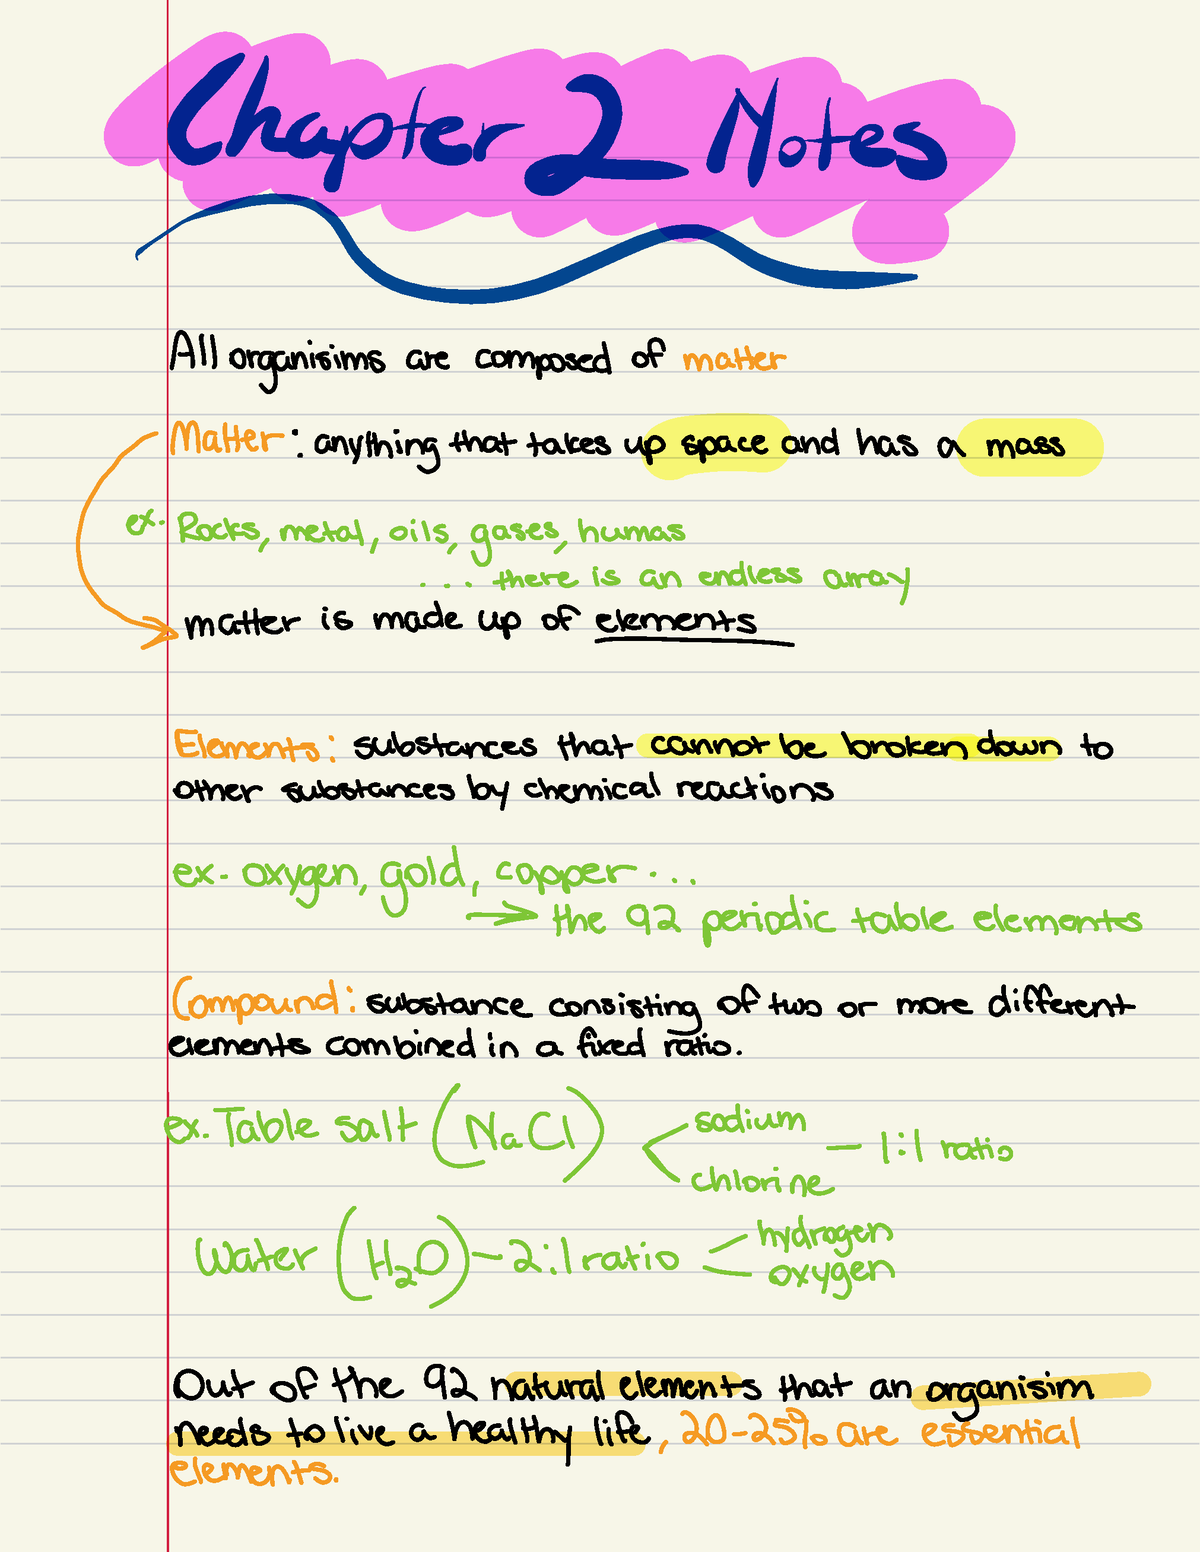 Chapter 2 Notes
All organisims are composed of matter
Matter: anything that takes up space and has a mass
ex. Rocks, metal, oils, gases, humas
... there is an endless array
matter is made up of elements
Elements: substances that cannot be broken down to
other substances by chemical reactions
ex- oxygen, gold, copper...
→ the 92 periodic table elements
Compound: substance consisting of two or more different
elements combined in a fixed ratio.
ex. Table salt (NaCl) < sodium chlorine — 1:1 ratio
Water (H₂O) - 2:1 ratio < hydrogen oxygen
Out of the 92 natural elements that an organisim
needs to live a healthy life, 20-25% are essential
elements.